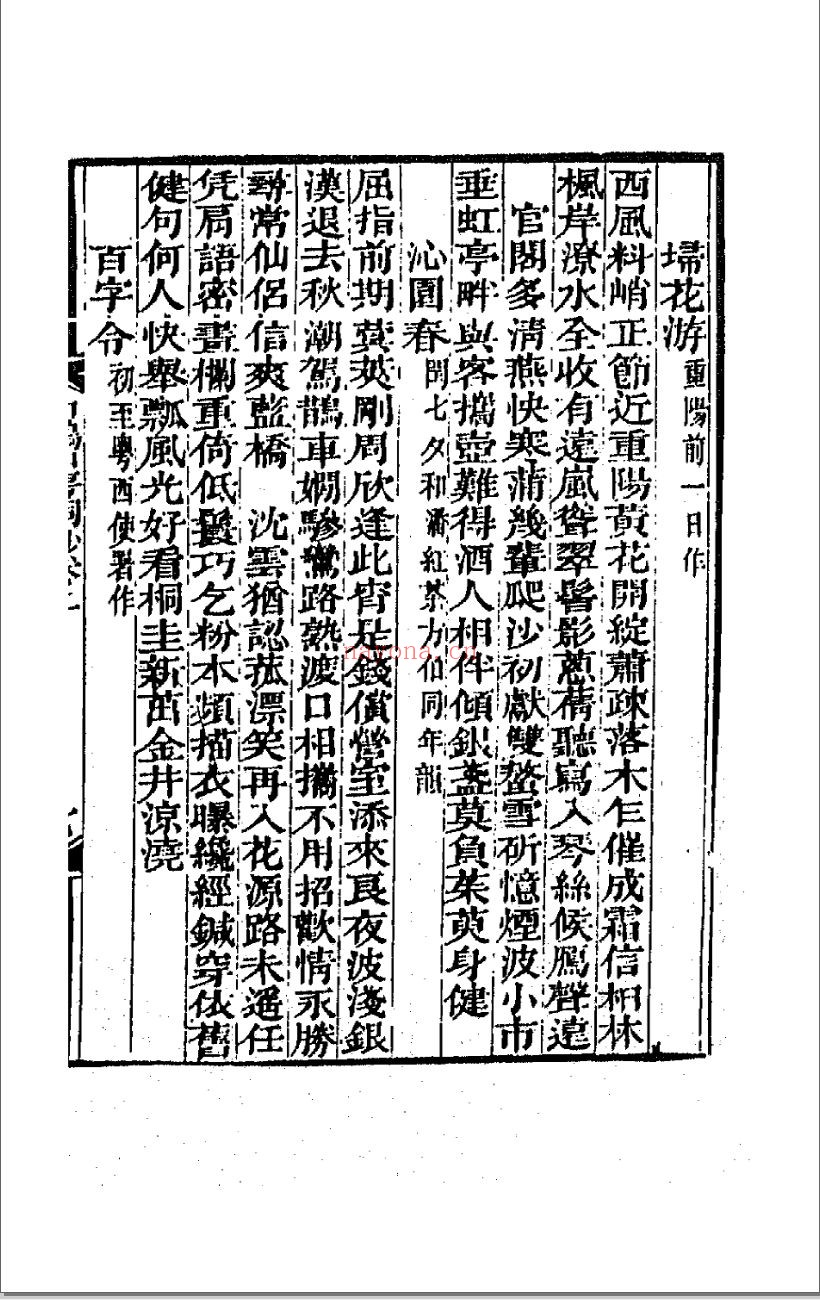 埽花游重陽前一日作
西風料峭正節近重陽黃花開綻蕭疎落木乍催成霜信桕林
楓岸潦水全收有遠嵐聳翠髻影蔥蒨聽寫入琴絲候鴈聲遠
官閣多清燕快寒蒲幾輩爬沙初獻雙螯雪斫憶煙波小市
垂虹亭畔與客攜壺難得酒人相伴傾銀盞莫負茱萸身健
沁園春閏七夕和潘紅茶方伯同年韻
屈指前期蓂莢剛周欣逢此宵是錢償營室添來良夜波淺銀
漢退去秋潮駕鵲車嫻驂鸞路熟渡口相攜不用招歡情永勝
尋常仙侶信爽藍橋　沈雲猶認菰漂笑再入花源路未遙任
凭肩語密畫欄重倚低鬟巧乞粉本頻描衣曝纔經鍼穿依舊
健句何人快舉瓢風光好看桐圭新茁金井涼澆
百字令初至粵西使署作